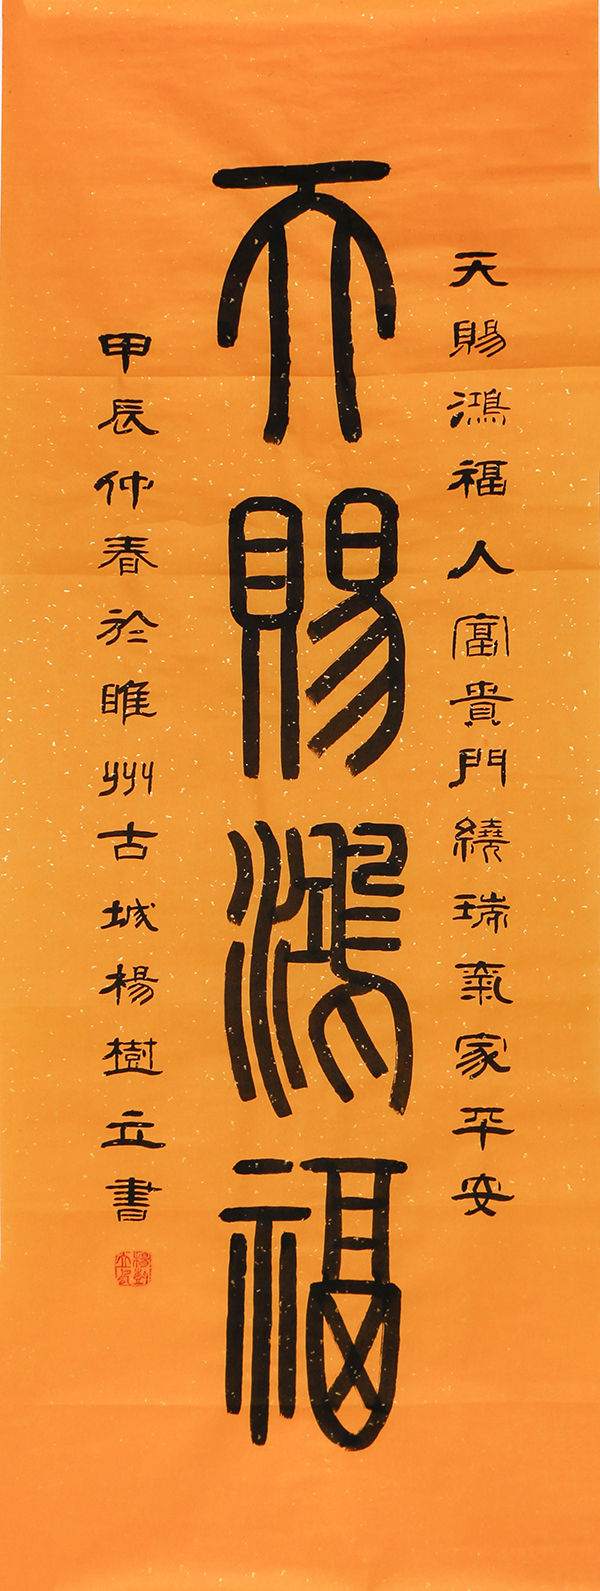 天賜鴻福人富貴門繞瑞氣家平安
天賜鴻福
甲辰仲春於睢州古城楊樹立書